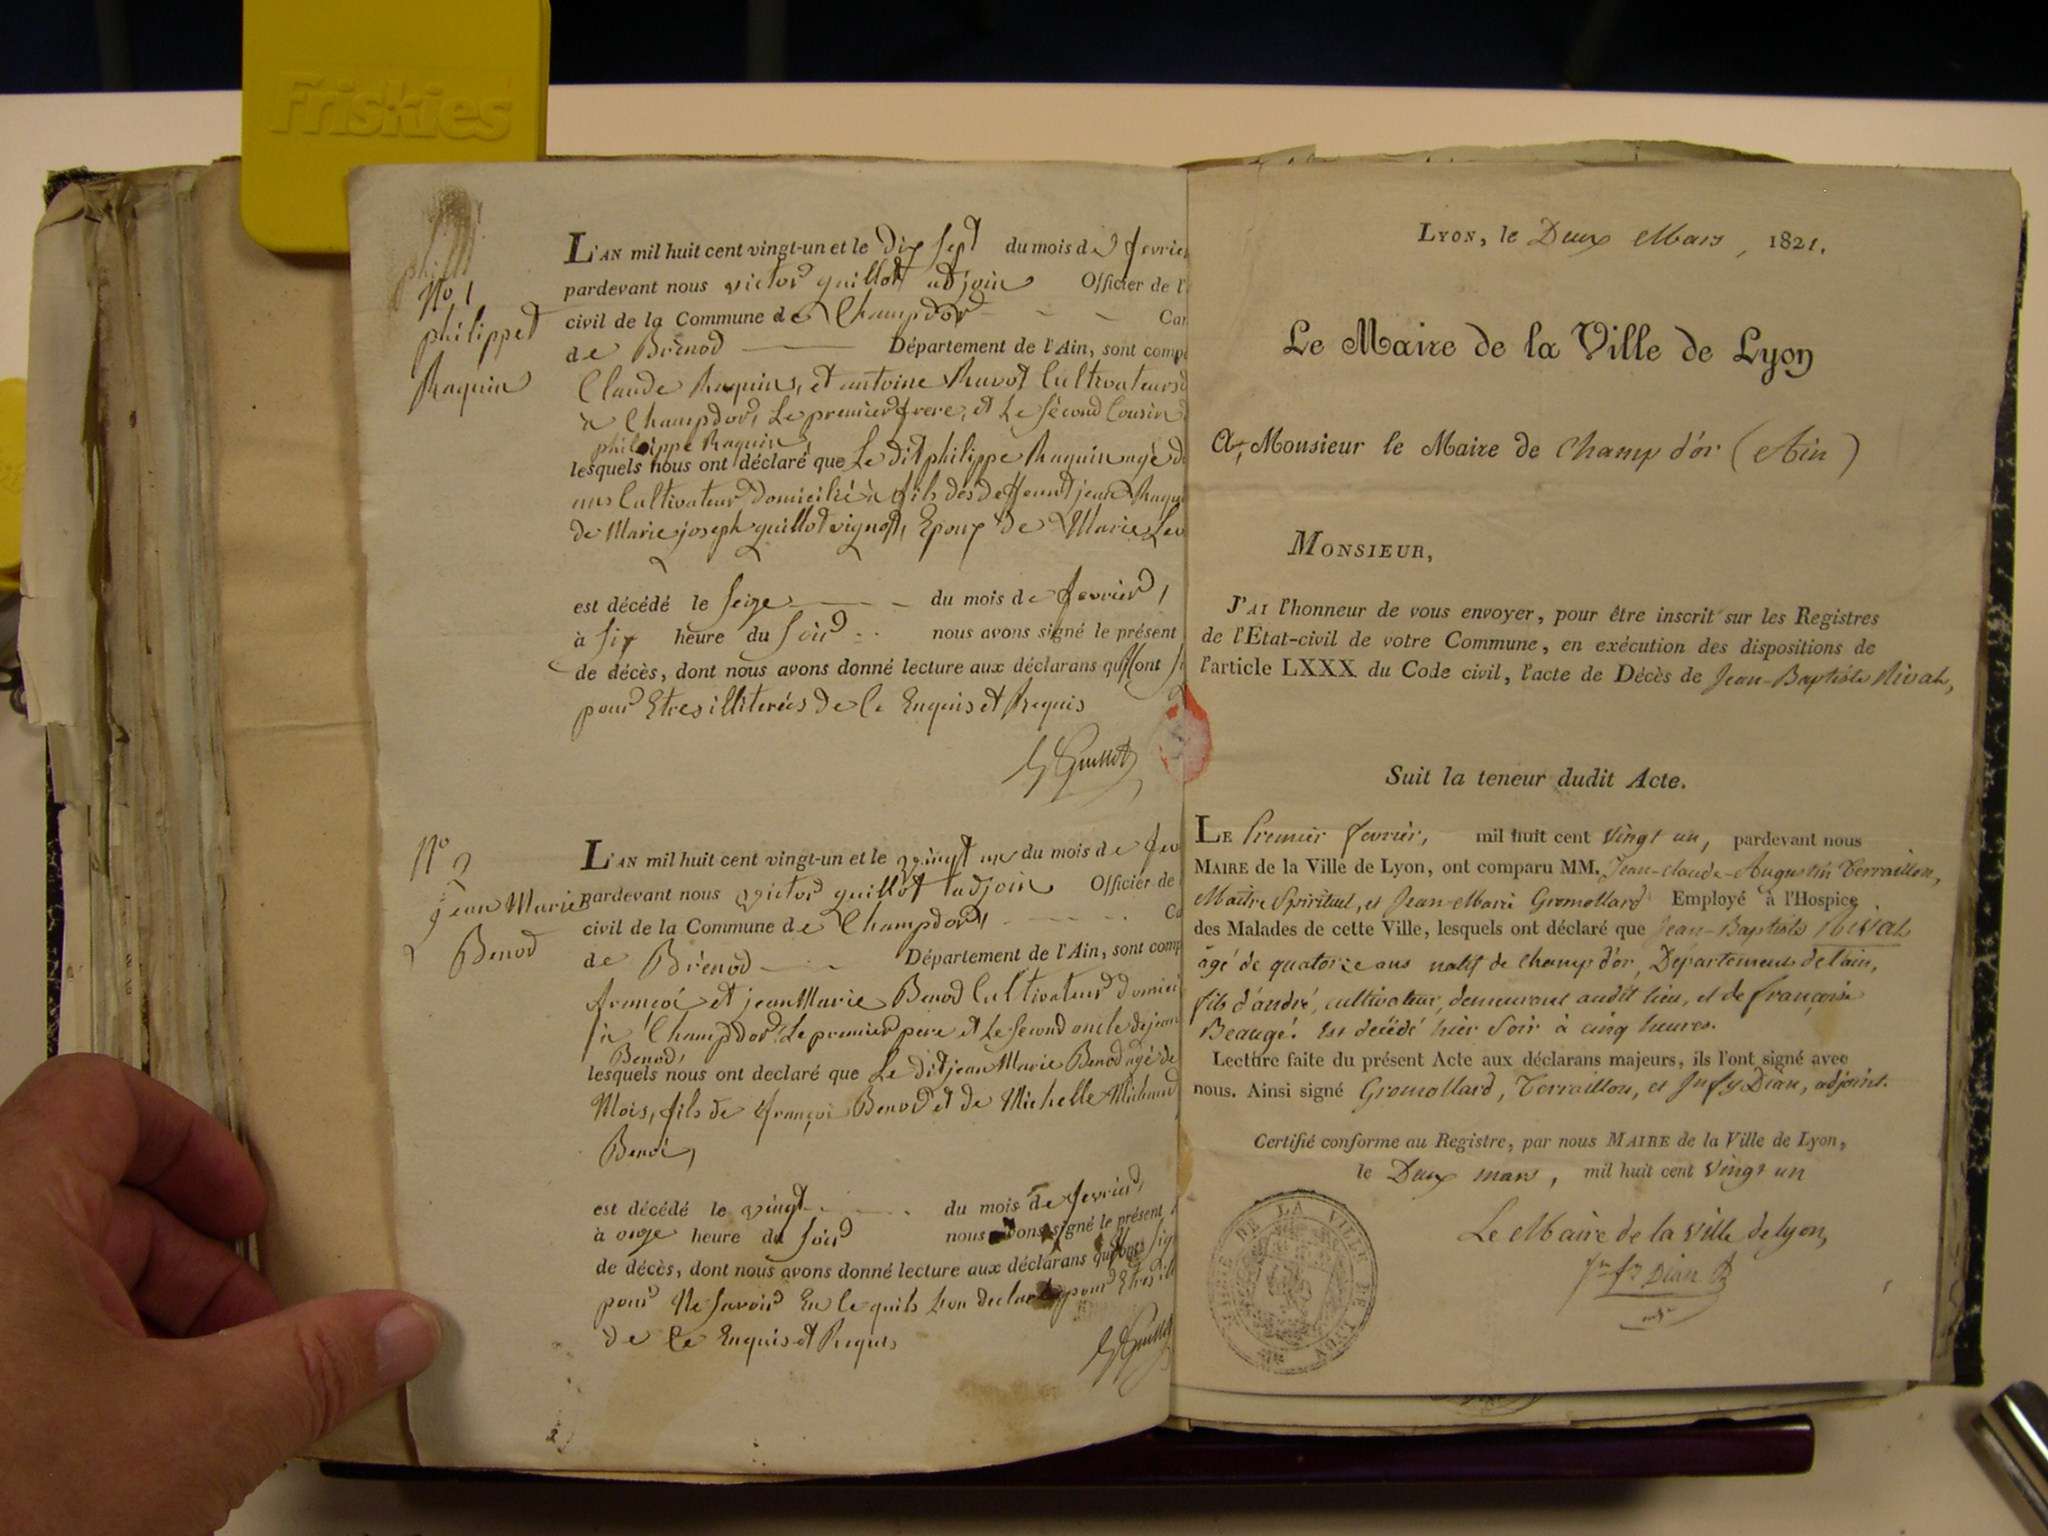 Friskies
No 1
philippe
Raquin
L'AN mil huit cent vingt-un et le dix sept du mois de fevrier
pardevant nous victor guillot adjoin Officier de l'
civil de la Commune de Champdor Can
de Brénod Département de l'Ain, sont comp
Claude Raquin, et antoine Ravot Cultivateurs
a Champdor, Le premier frere, et Le second Cousin
philippe Raquin,
lesquels nous ont déclaré que Le dit philippe Raquin agé d
ans Cultivateur domicilié à fils des deffeunt jean Raqu
de Marie joseph guillot vignot, Epoux de Marie Lev
est décédé le seize du mois de fevrier,
à six heure du soir nous avons signé le présent
de décès, dont nous avons donné lecture aux déclarans qui ont
pour Etres illiterés de Ce Enquis et Requis
Guillot
No 2
jean Marie
Benod
L'AN mil huit cent vingt-un et le vingt un du mois de fev
pardevant nous victor guillot adjoin Officier de
civil de la Commune de Champdor, Ca
de Brénod Département de l'Ain, sont comp
françoi et jean Marie Benod Cultivateur domici
à Champdor, Le premier pere et Le second oncle de jean
Benod,
lesquels nous ont declaré que Le dit jean Marie Benod agé de
Mois, fils de françoi Benod et de Michelle
Benoi,
est décédé le vingt du mois de fevrier,
à onze heure du soir nous avons signé le présent
de décès, dont nous avons donné lecture aux déclarans qui ont sig
pour Ne savoir En Ce quils Lon declaré pour Etres ill
de Ce Enquis et Requis
Guillot
2
LYON, le Deux Mars, 1821.
Le Maire de la Ville de Lyon
A Monsieur le Maire de Champ d'or (Ain)
MONSIEUR,
J'AI l'honneur de vous envoyer, pour être inscrit sur les Registres
de l'Etat-civil de votre Commune, en exécution des dispositions de
l'article LXXX du Code civil, l'acte de Décès de Jean-Baptiste Nivat,
Suit la teneur dudit Acte.
LE Premier fevrier, mil huit cent vingt un, pardevant nous
MAIRE de la Ville de Lyon, ont comparu MM. Jean-Claude-Augustin Terraillon,
Maître Spirituel, et Jean-Marie Gromollard Employé à l'Hospice
des Malades de cette Ville, lesquels ont déclaré que Jean-Baptiste Nivat
âgé de quatorze ans natif de Champ d'or, Département de l'ain,
fils d'andré, cultivateur, demeurant audit lieu, et de françoise
Beaugé. Est décédé hier Soir à cinq heures.
Lecture faite du présent Acte aux déclarans majeurs, ils l'ont signé avec
nous. Ainsi signé Gromollard, Terraillon, et Jn fs Dian, adjoint.
Certifié conforme au Registre, par nous MAIRE de la Ville de Lyon,
le Deux mars, mil huit cent vingt un
Le Maire de la ville de Lyon,
Jn fs Dian
MAIRIE DE LA VILLE DE LYON